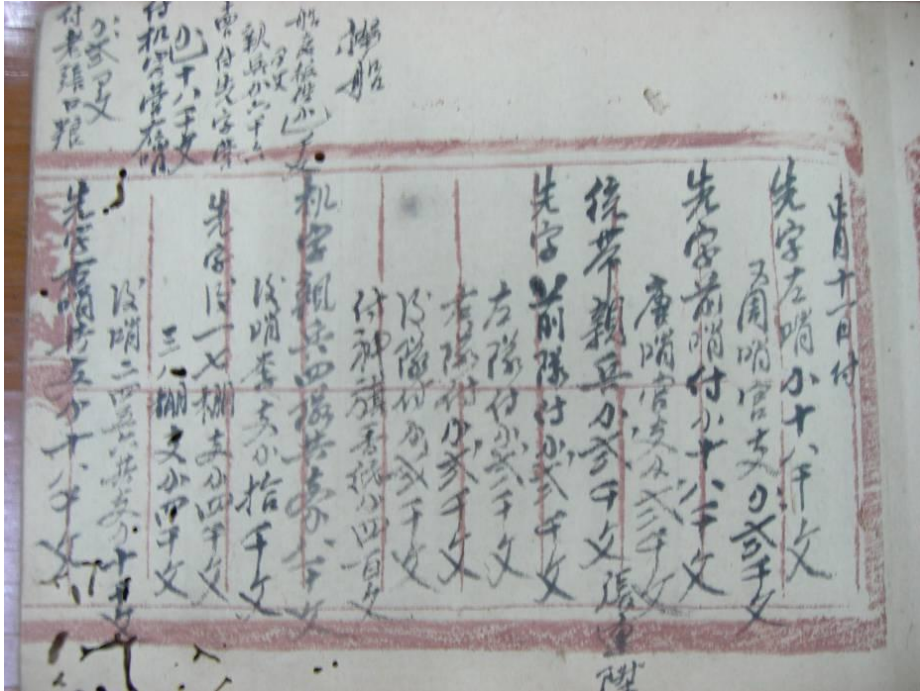 月十一日付
先字左哨小十八千文
又周哨官支小弍千文
先字前哨付小十八千文
唐哨官支小弍千文
統帶親兵小弍千文
先字前隊付小弍千文
左隊付小弍千文
右隊付小弍千文
後隊付小弍千文
付神旗香紙小四百文
親兵四隊共支小八千文
後哨李支小拾千文
先字後一七棚支小四千文
三八棚支小四千文
後哨二四五六共支小十千文
先字右哨支小十八千文
船
小十八千文
小弍千文
付老張口糧